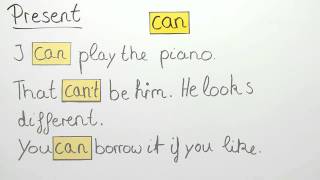 Present
can
I can play the piano.
That can't be him. He looks
different.
You can borrow it if you like.